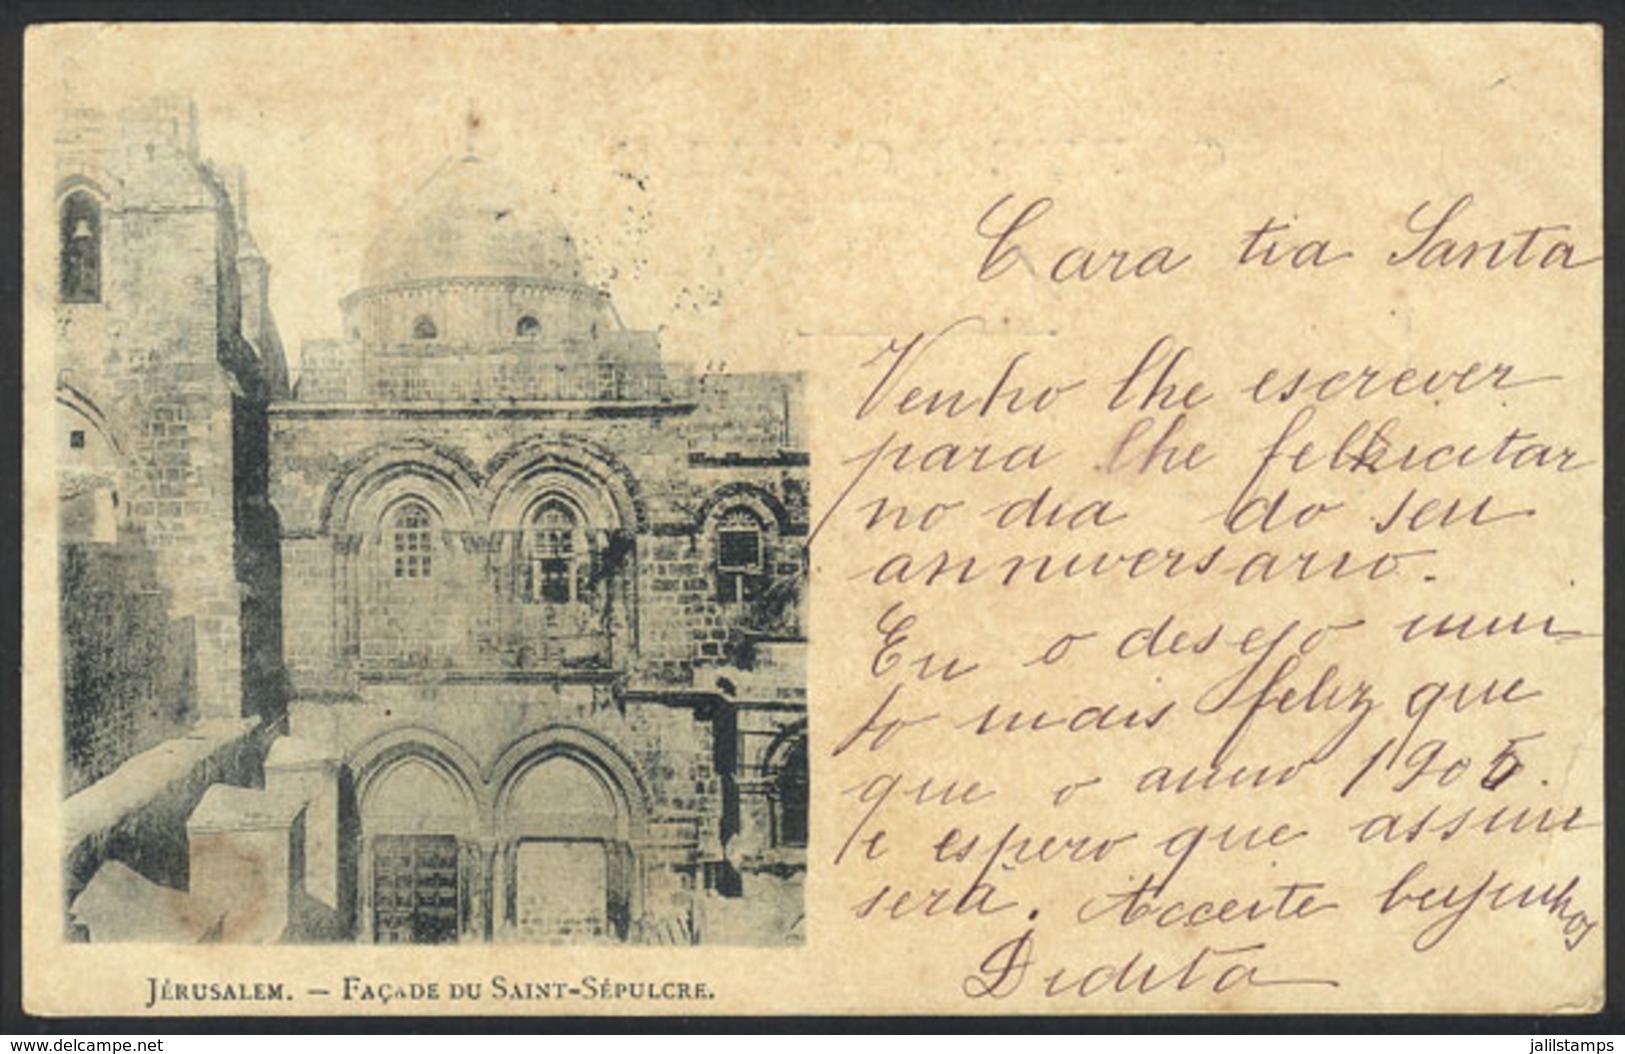 Cara tia Santa
Venho lhe escrever
para lhe felicitar
no dia do seu
anniversario.
Eu o desejo mui
to mais feliz que
que o anno 1905.
e espero que assim
será. Acceite beijinhos
Didita
JÉRUSALEM. — FAÇADE DU SAINT-SÉPULCRE.
www.delcampe.net
jalilstamps